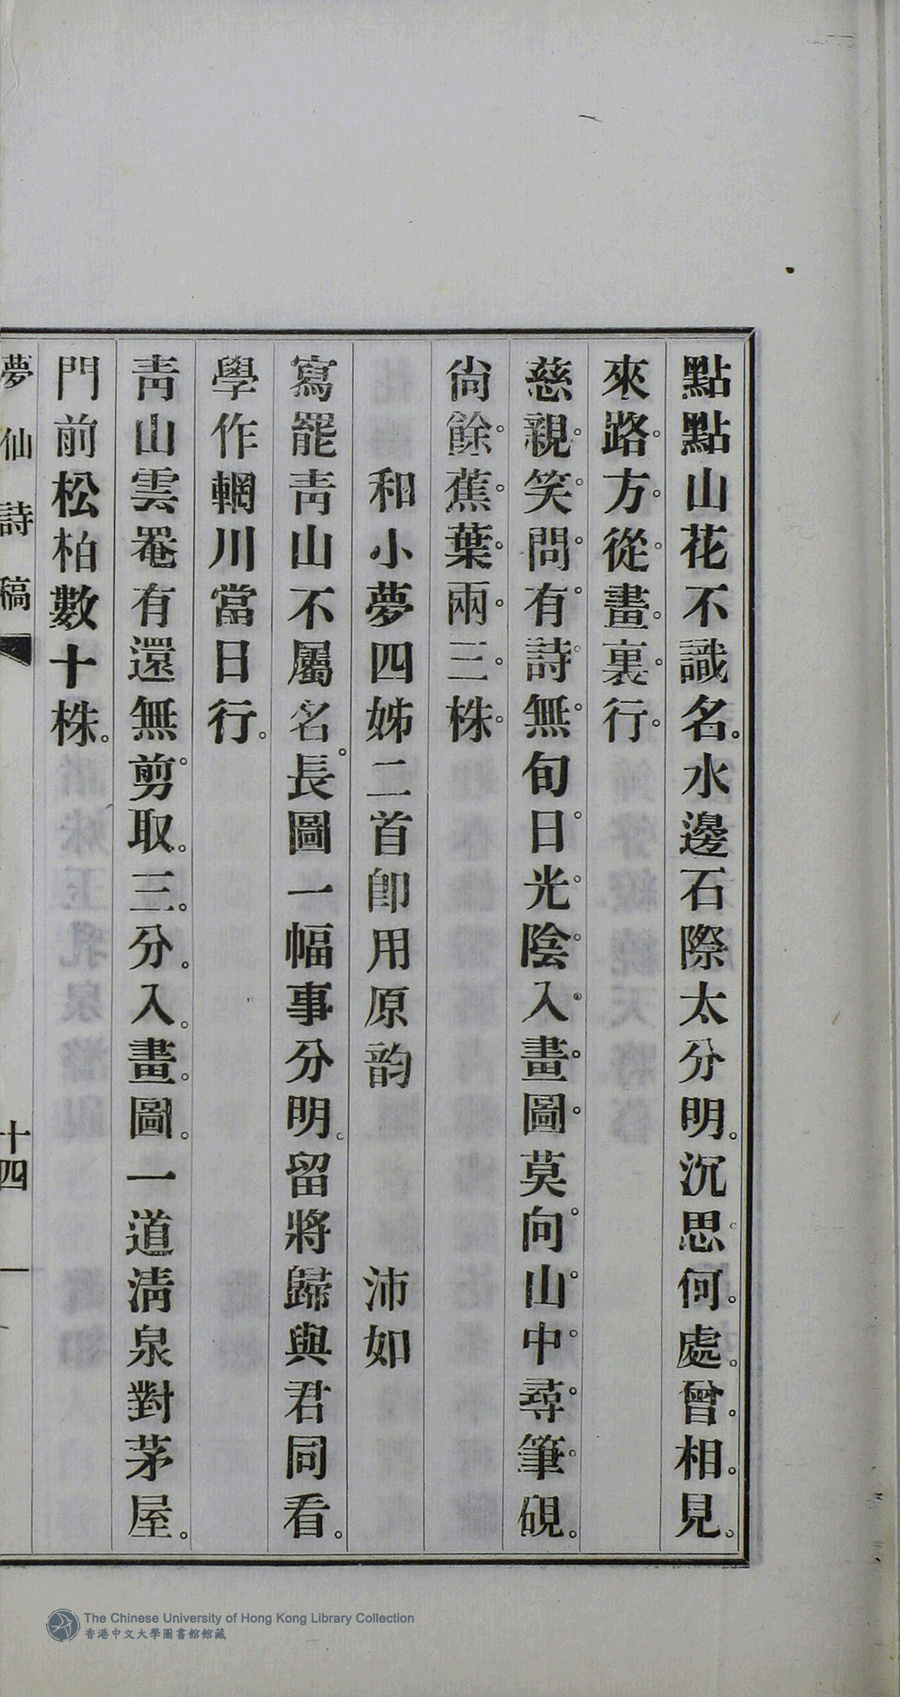 點點山花不識名。水邊石際太分明。沉思何處曾相見。
來路方從畫裏行。
慈親笑問有詩無。旬日光陰入畫圖。莫向山中尋筆硯。
尙餘蕉葉兩三株。
和小夢四姊二首卽用原韵 沛如
寫罷靑山不屬名。長圖一幅事分明。留將歸與君同看。
學作輞川當日行。
靑山雲罨有還無。剪取三分入畫圖。一道淸泉對茅屋。
門前松柏數十株。
夢仙詩稿 十四
The Chinese University of Hong Kong Library Collection
香港中文大學圖書館館藏